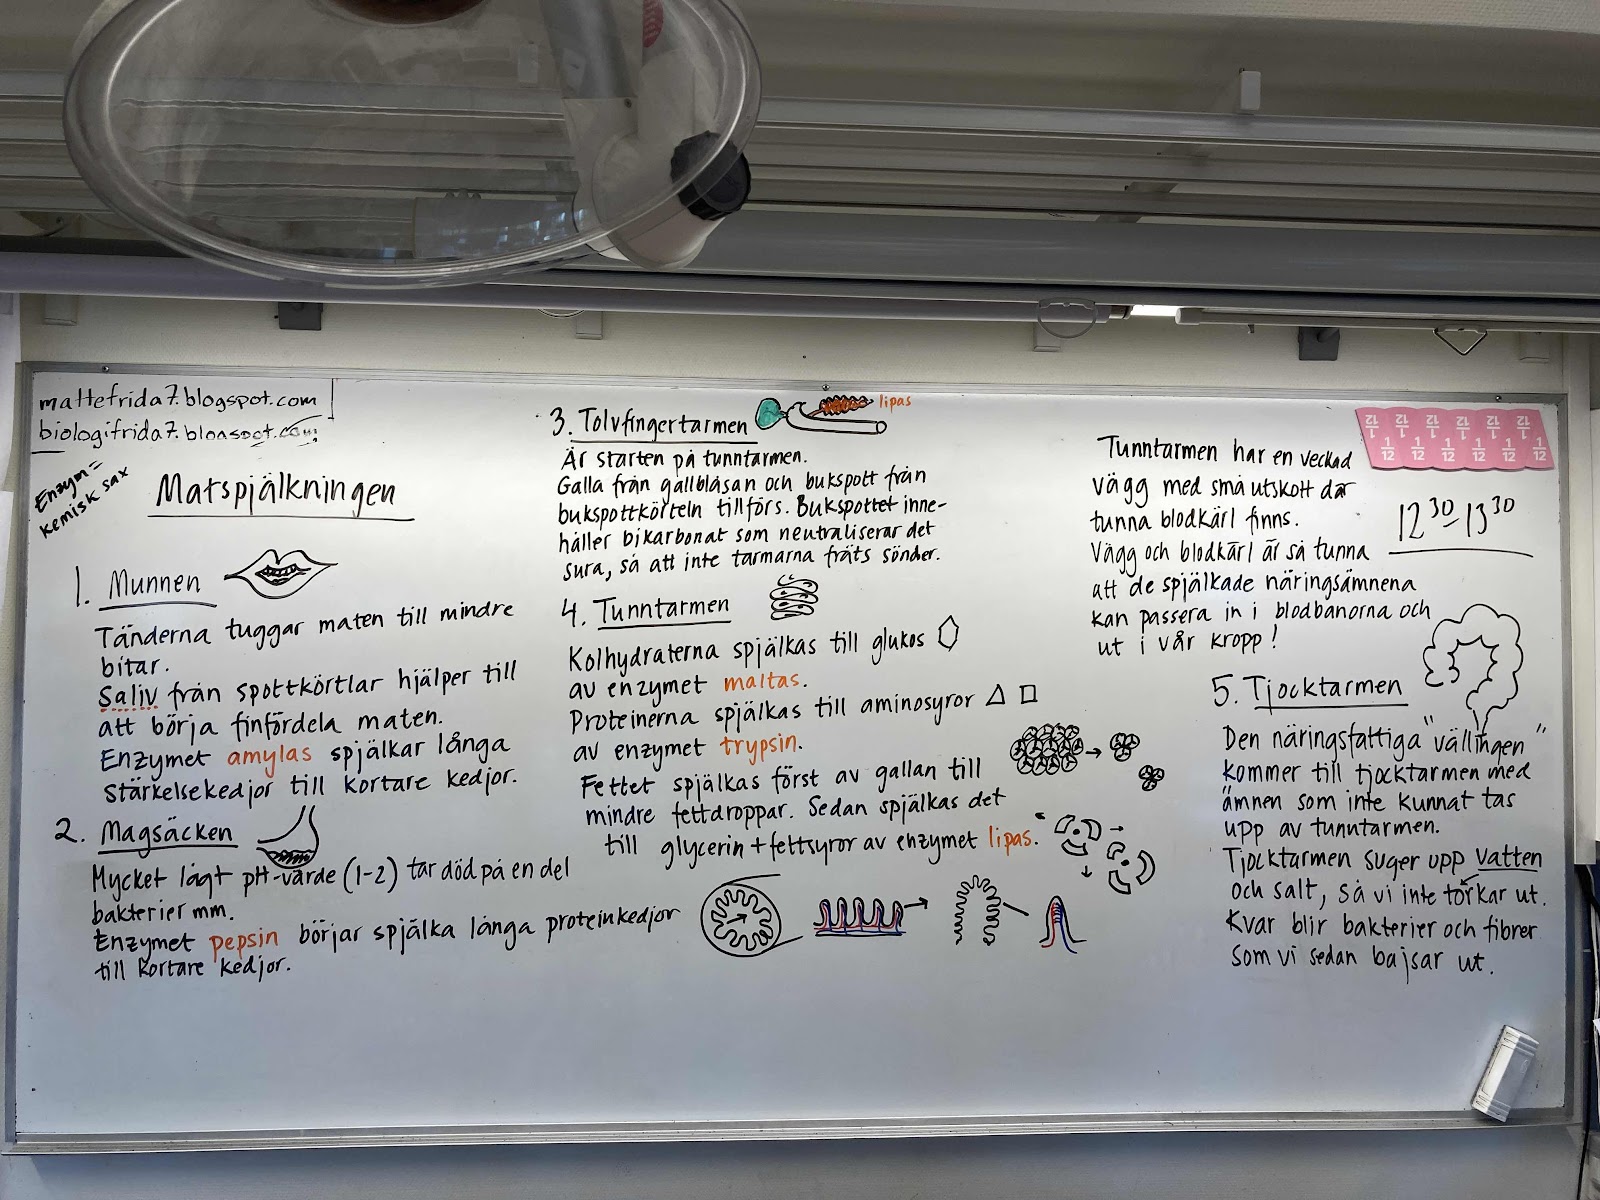 mattefrida7.blogspot.com
biologifrida7.blogspot.com
Enzym =
kemisk sax
Matspjälkningen
1. Munnen
Tänderna tuggar maten till mindre
bitar.
Saliv från spottkörtlar hjälper till
att börja finfördela maten.
Enzymet amylas spjälkar långa
stärkelsekedjor till kortare kedjor.
2. Magsäcken
Mycket lågt pH-värde (1-2) tar död på en del
bakterier mm.
Enzymet pepsin börjar spjälka långa proteinkedjor
till kortare kedjor.
3. Tolvfingertarmen
lipas
Är starten på tunntarmen.
Galla från gallblåsan och bukspott från
bukspottkörteln tillförs. Bukspottet inne-
håller bikarbonat som neutraliserar det
sura, så att inte tarmarna fräts sönder.
4. Tunntarmen
Kolhydraterna spjälkas till glukos
av enzymet maltas.
Proteinerna spjälkas till aminosyror
av enzymet trypsin.
Fettet spjälkas först av gallan till
mindre fettdroppar. Sedan spjälkas det
till glycerin + fettsyror av enzymet lipas.
Tunntarmen har en veckad
vägg med små utskott där
tunna blodkärl finns.
Vägg och blodkärl är så tunna
att de spjälkade näringsämnena
kan passera in i blodbanorna och
ut i vår kropp!
1/12 1/12 1/12 1/12 1/12 1/12
1/12 1/12 1/12 1/12 1/12 1/12
12 30 - 13 30
5. Tjocktarmen
Den näringsfattiga "vällingen"
kommer till tjocktarmen med
ämnen som inte kunnat tas
upp av tunntarmen.
Tjocktarmen suger upp vatten
och salt, så vi inte torkar ut.
Kvar blir bakterier och fibrer
som vi sedan bajsar ut.